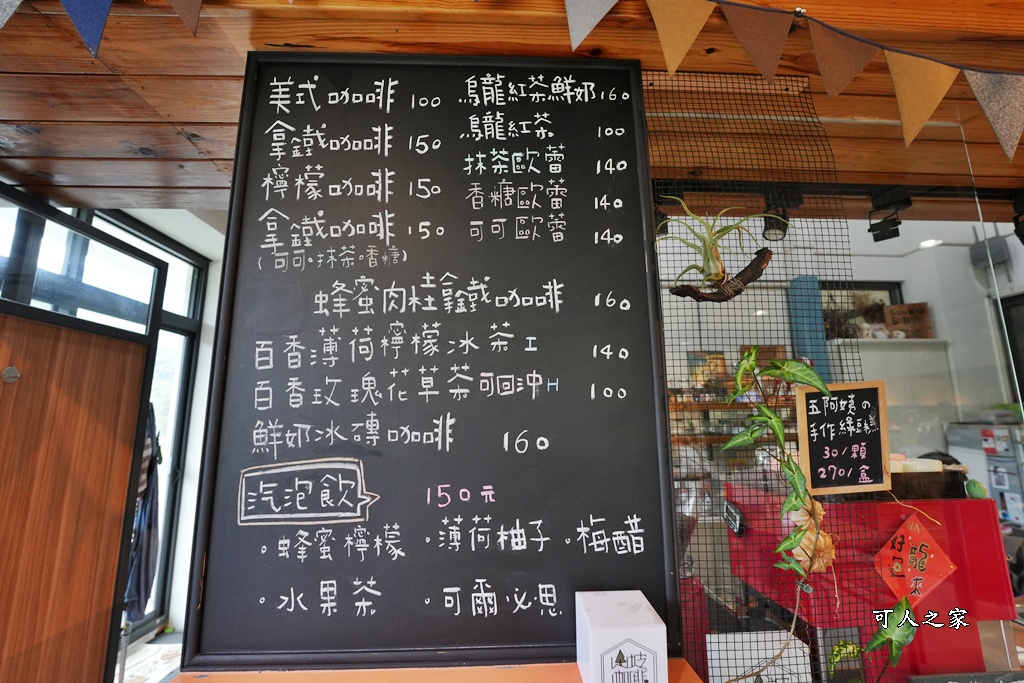 美式咖啡 100
拿鐵咖啡 150
檸檬咖啡 150
拿鐵咖啡 150
(可可。抹茶。香糖)
烏龍紅茶鮮奶 160
烏龍紅茶 100
抹茶歐蕾 140
香糖歐蕾 140
可可歐蕾 140
蜂蜜肉桂拿鐵咖啡 160
百香薄荷檸檬冰茶 I 140
百香玫瑰花草茶可回沖 H 100
鮮奶冰磚咖啡 160
汽泡飲 150元
。蜂蜜檸檬 。薄荷柚子 。梅醋
。水果茶 。可爾必思
五阿姨の
手作綠豆糕
30/顆
270/盒
龍來
好
可人之家
山坡
咖啡